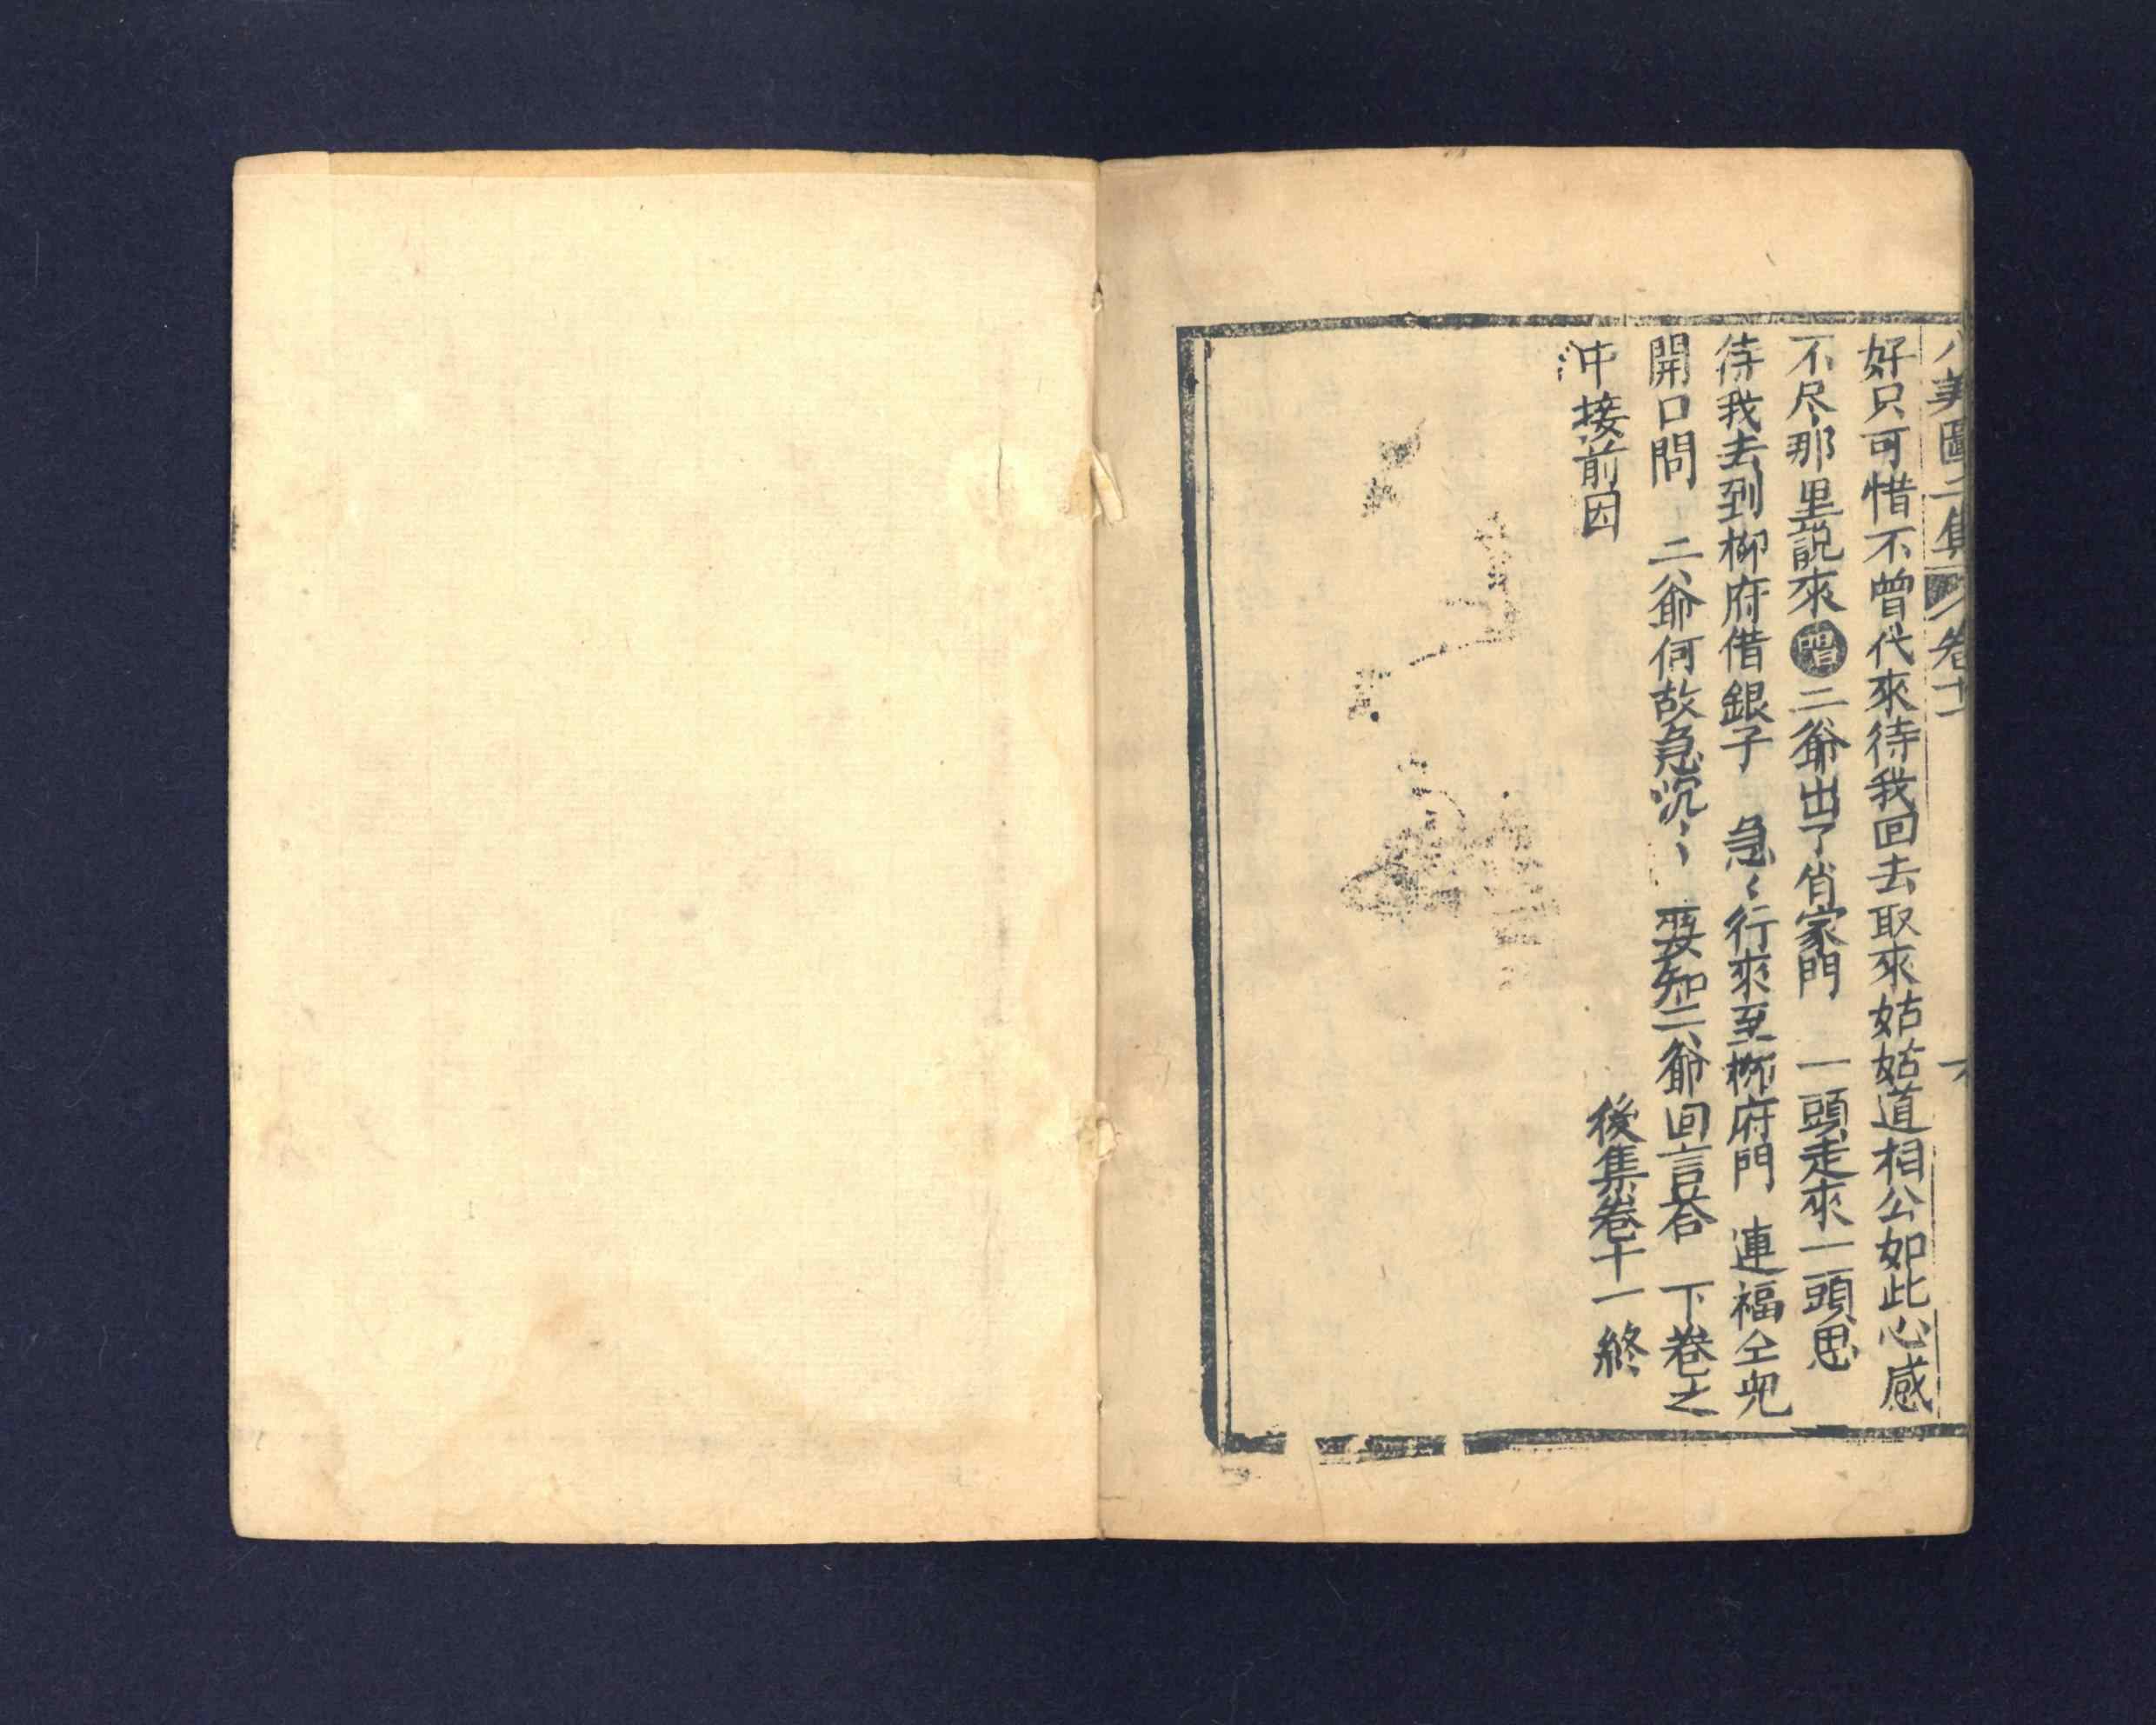 八美圖二集 卷十一 六
好只可惜不曾代來待我回去取來姑姑道相公如此心感
不尽那里說來唱二爺出了肖家門 一頭走來一頭思
待我去到柳府借銀子 急〻行來至柳府門 連福仝兜
開口問 二爺何故急沉〻 要知二爺回言荅 下卷之
中接前因
後集卷十一終